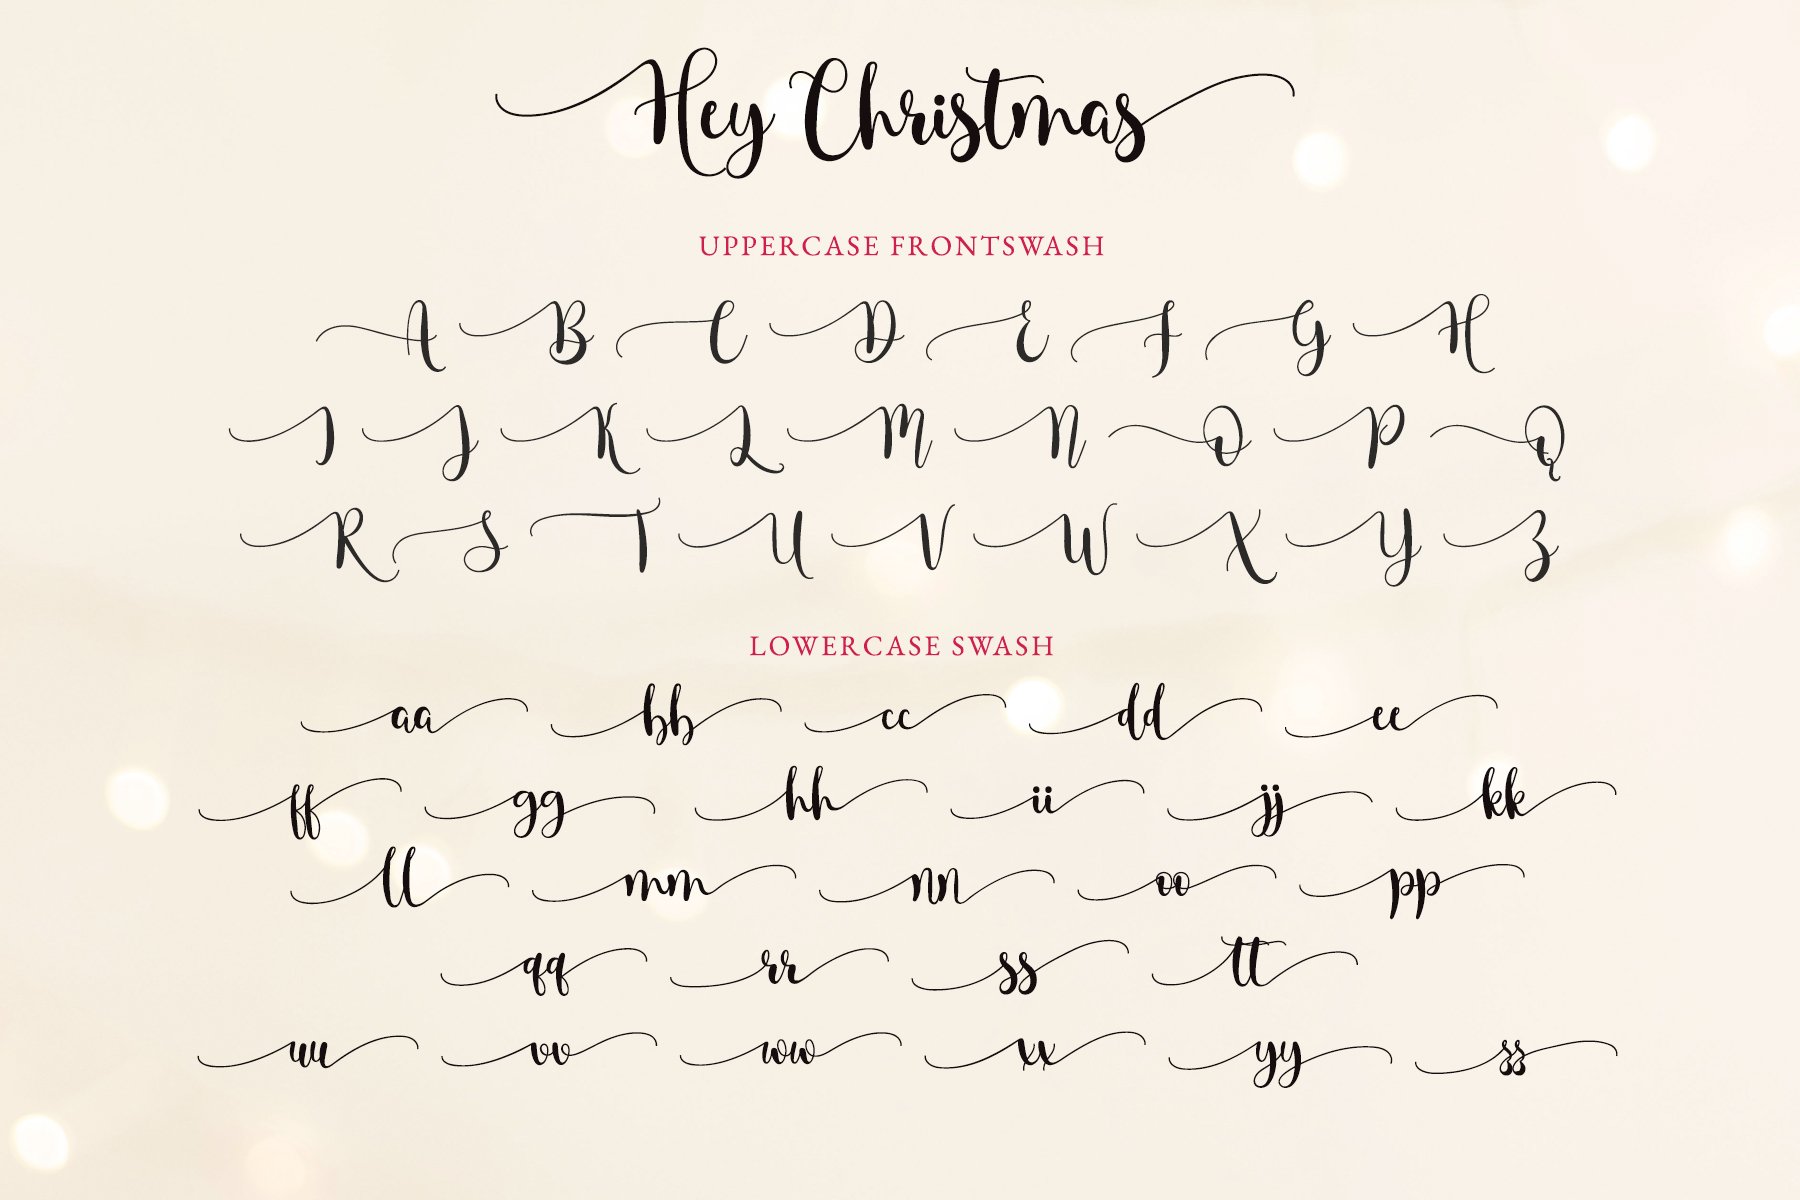 Hey Christmas
UPPERCASE FRONTSWASH
A B C D E F G H
I J K L M N O P Q
R S T U V W X Y Z
LOWERCASE SWASH
aa bb cc dd ee
ff gg hh ii jj kk
ll mm nn oo pp
qq rr ss tt
uu vv ww xx yy zz